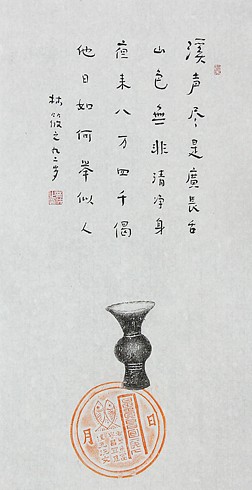 溪声尽是廣長舌
山色無非清净身
夜来八万四千偈
他日如何举似人
林筱之九二岁
日
月